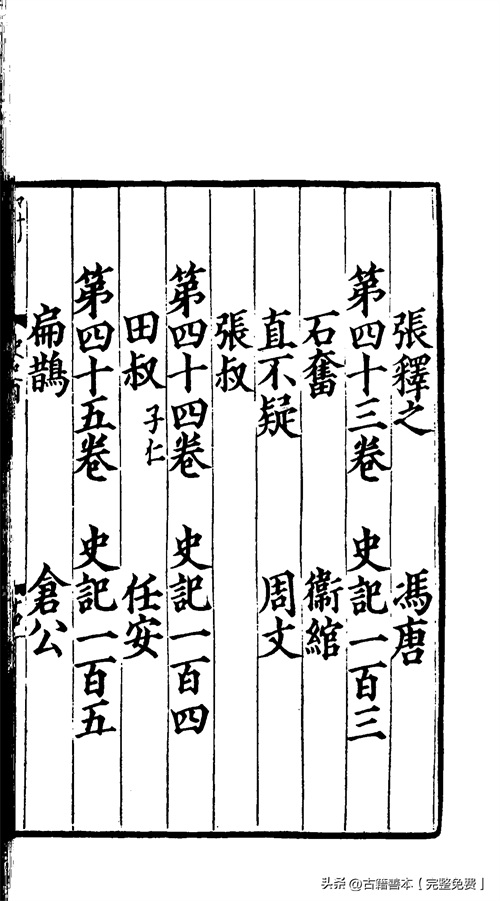 張釋之 馮唐
第四十三卷 史記一百三
石奮 衞綰
直不疑 周文
張叔
第四十四卷 史記一百四
田叔 子仁 任安
第四十五卷 史記一百五
扁鵲 倉公
头条 @古籍善本【完整免费】